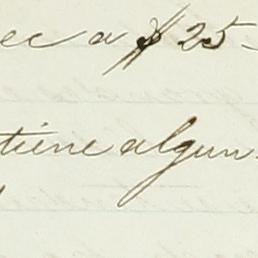 ec a $ 25-
tiene algun